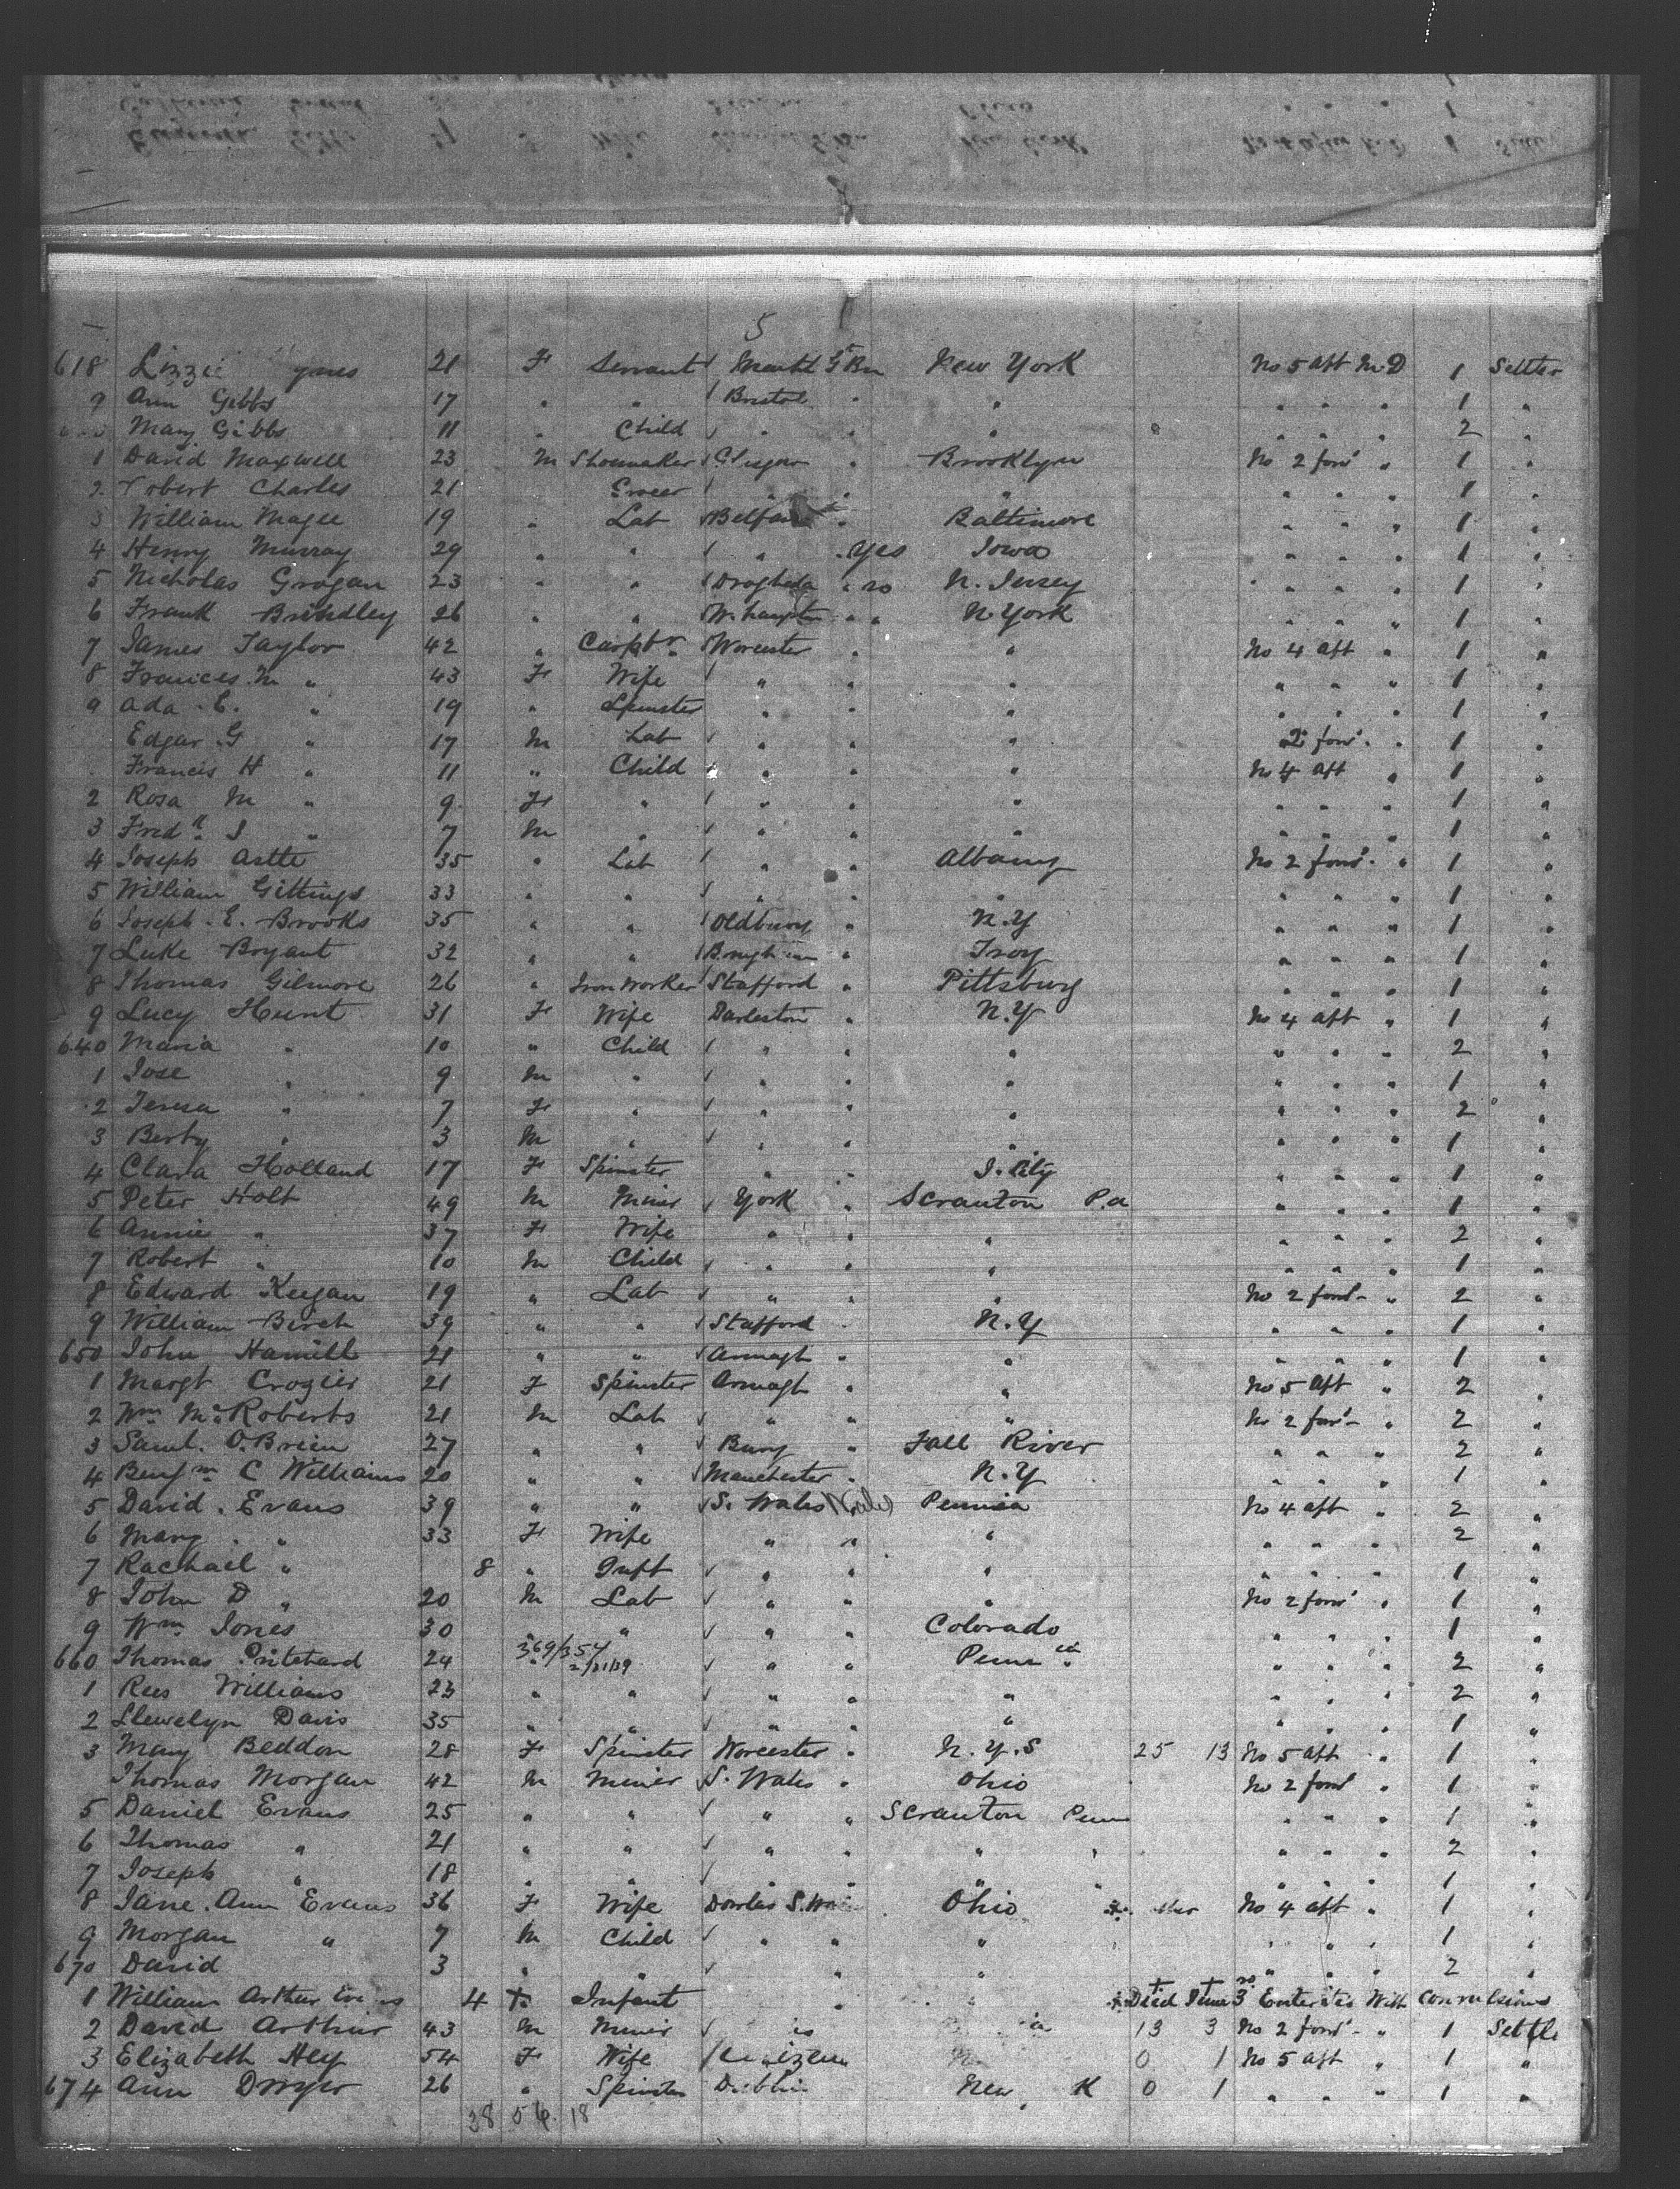 5
618 Lizzie 21 F Servant G Bn New York No 5 aft M.D 1 Settler
9 Ann Gibbs 17 " " Bristol " " " " " 1 "
Mary Gibbs 11 " Child " " " " " " 2 "
1 David Maxwell 23 M Shoemaker " Brooklyn No 2 ford " 1 "
2 Robert Charles 21 Grocer " " " " " " 1 "
3 William Magee 19 " Lab Belfast " Baltimore " " " 1 "
4 Henry Murray 29 " " " " Yes Iowa " " " 1 "
5 Nicholas Grogan 23 " " Drogheda " no N. Jersey " " " 1 "
6 Frank Brindley 26 " " W.hampton " " N. York " " " 1 "
7 James Taylor 42 " Carptr " Worcester " " No 4 aft " 1 "
8 Frances M " 43 F Wife " " " " " " 1 "
9 Ada E. " 19 " Spinster " " " " " " 1 "
Edgar G " 17 M Lab " " " 2 ford " " 1 "
Francis H " 11 " Child " " " No 4 aft " 1 "
2 Rosa M " 9 F " " " " " " " 1 "
3 Fredk J " 7 M " " " " " " " 1 "
4 Joseph Astle 35 " Lab " " Albany No 2 ford " " 1 "
5 William Gittings 33 " " " " " " " " 1 "
6 Joseph E. Brooks 35 " " Oldbury " N.Y " " " 1 "
7 Luke Bryant 32 " " " Troy " " " 1 "
8 Thomas Gilmore 26 " Iron Worker Stafford " Pittsburg " " " 1 "
9 Lucy Hunt 31 F Wife Darleston " N.Y No 4 aft " 1 "
640 Maria " 10 " Child " " " " " " 2 "
1 Jose " 9 M " " " " " " " 1 "
2 Teresa " 7 F " " " " " " " 2 "
3 Berty " 3 M " " " " " " " 1 "
4 Clara Holland 17 F Spinster " " J. City " " " 1 "
5 Peter Holt 49 M Miner York " Scranton P.a " " " 1 "
6 Annie " 37 F Wife " " " " " " 2 "
7 Robert " 10 M Child " " " " " " 1 "
8 Edward Keegan 19 " Lab " " " No 2 ford " " 2 "
9 William Birch 39 " " Stafford " N.Y " " " 1 "
650 John Hamill 21 " " Armagh " " " " " 1 "
1 Margt Crozier 21 F Spinster Armagh " " No 5 aft " 2 "
2 Wm McRoberts 21 M Lab " " " No 2 ford " " 2 "
3 Saml. O.Brien 27 " " Bury " Fall River " " " 2 "
4 Benjm C Williams 20 " " Manchester " N.Y " " " 1 "
5 David Evans 39 " " S. Wales Wales Pennia No 4 aft " 2 "
6 Mary " 33 F Wife " " " " " " 2 "
7 Rachael " 8 " Inft " " " " " " 1 "
8 John D " 20 M Lab " " " No 2 ford " 1 "
9 Wm Jones 30 " " " " Colorado " " " 1 "
660 Thomas Pritchard 24 369/357 2/21/39 " " Penn ia " " " 2 "
1 Rees Williams 23 " " " " " " " " 2 "
2 Llewelyn Davis 35 " " " " " " " " 1 "
3 Mary Beddon 28 F Spinster Worcester " N.Y.S 25 13 No 5 aft " " 1 "
Thomas Morgan 42 M Miner S. Wales " Ohio No 2 ford " 1 "
5 Daniel Evans 25 " " " " Scranton Penn " " " 1 "
6 Thomas " 21 " " " " " " " " " 2 "
7 Joseph " 18 " " " " " " " " " 1 "
8 Jane Ann Evans 36 F Wife Dowlas S. Ohio No 4 aft " 1 "
9 Morgan " 7 M Child " " " " " " 1 "
670 David 3 " " " " " " " 2 "
1 William Arthur Evans 4 Infant " " Died June 3 Enterites With Convulsions
2 David Arthur 43 M Miner 13 3 No 2 ford " " 1 Settle
3 Elizabeth Hey 54 F Wife 0 1 No 5 aft " 1 "
674 Ann Dwyer 26 " Spinster Dublin New K 0 1 " " " 1 "
38 56 18